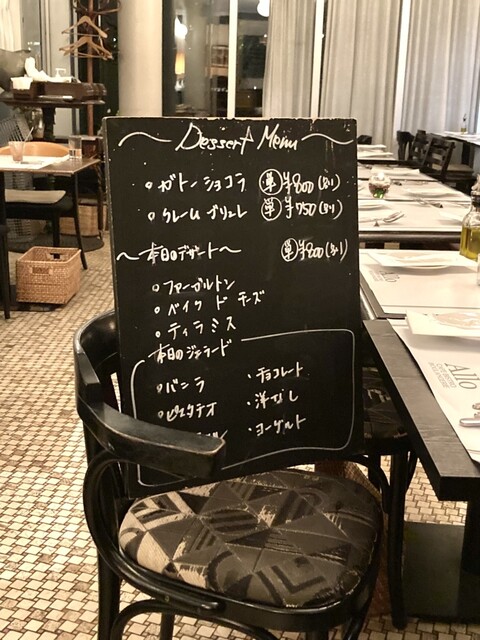 Dessert Menu
・ガトーショコラ 単 ¥800(込)
・クレームブリュレ 単 ¥750(込)
〜本日のデザート〜 単 ¥800(込)
・ファーブルトン
・ベイクドチーズ
・ティラミス
本日のジェラード
・バニラ ・チョコレート
・ピスタチオ ・洋なし
・ヨーグルト
Allo